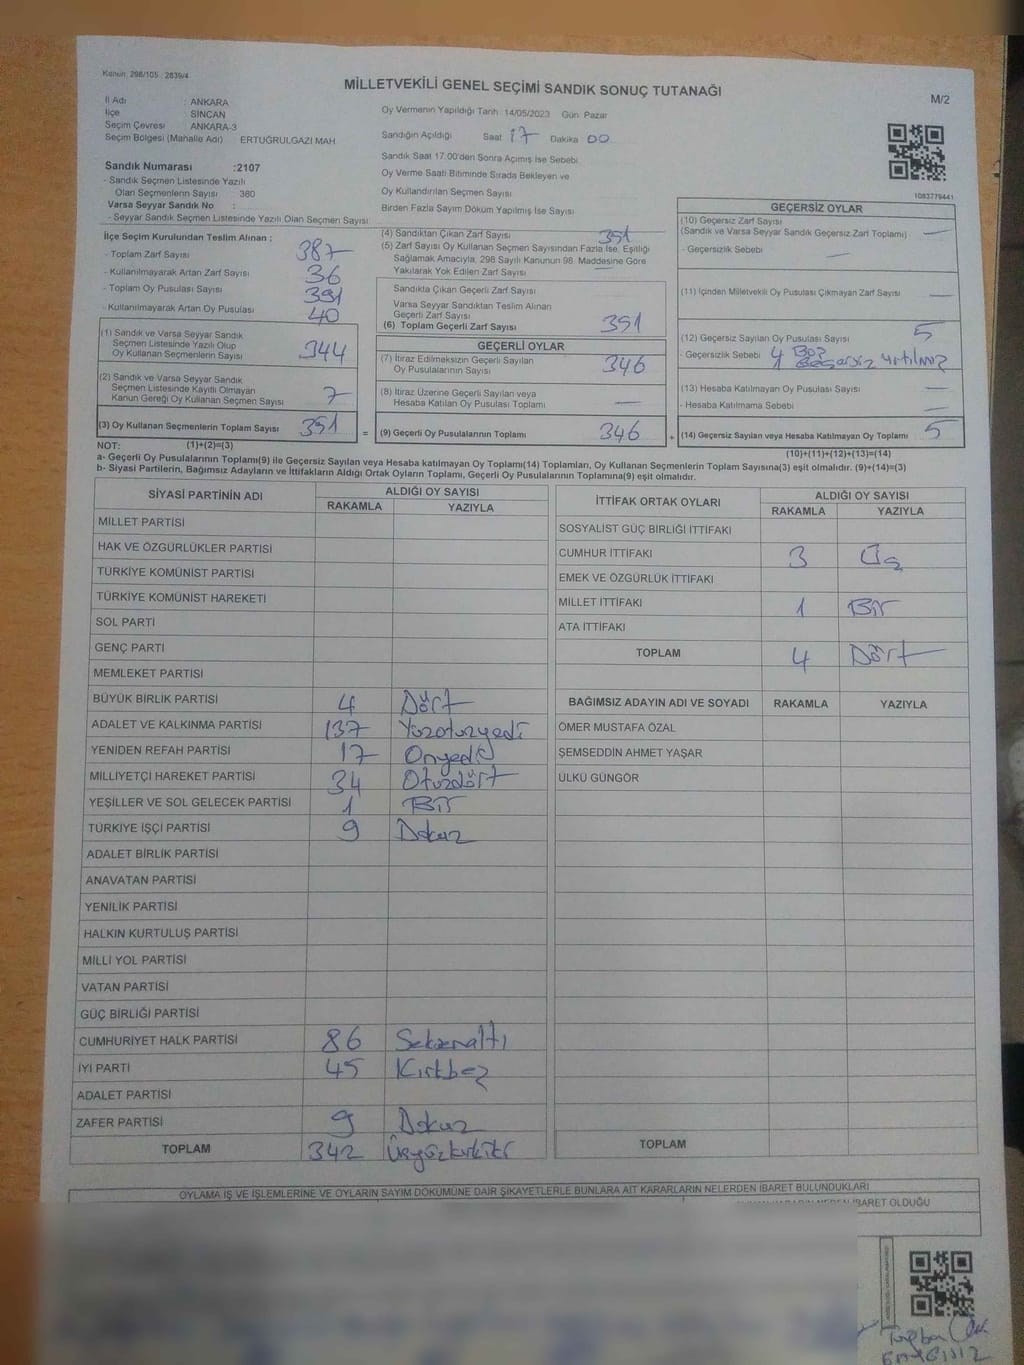 Kanun: 298/105 : 2839/4
MİLLETVEKİLİ GENEL SEÇİMİ SANDIK SONUÇ TUTANAĞI
M/2
İl Adı : ANKARA
İlçe : SİNCAN
Seçim Çevresi : ANKARA-3
Seçim Bölgesi (Mahalle Adı) ERTUĞRULGAZİ MAH
Oy Vermenin Yapıldığı Tarih: 14/05/2023 Gün Pazar
Sandığın Açıldığı Saat 17 Dakika 00
Sandık Saat 17.00'den Sonra Açılmış İse Sebebi
Oy Verme Saati Bitiminde Sırada Bekleyen ve
Oy Kullandırılan Seçmen Sayısı
Birden Fazla Sayım Döküm Yapılmış İse Sayısı
1083779441
Sandık Numarası :2107
- Sandık Seçmen Listesinde Yazılı
Olan Seçmenlerin Sayısı 380
Varsa Seyyar Sandık No :
- Seyyar Sandık Seçmen Listesinde Yazılı Olan Seçmen Sayısı
İlçe Seçim Kurulundan Teslim Alınan :
- Toplam Zarf Sayısı 387
- Kullanılmayarak Artan Zarf Sayısı 36
- Toplam Oy Pusulası Sayısı 391
- Kullanılmayarak Artan Oy Pusulası 40
(1) Sandık ve Varsa Seyyar Sandık
Seçmen Listesinde Yazılı Olup
Oy Kullanan Seçmenlerin Sayısı 344
(2) Sandık ve Varsa Seyyar Sandık
Seçmen Listesinde Kayıtlı Olmayan
Kanun Gereği Oy Kullanan Seçmen Sayısı 7
(3) Oy Kullanan Seçmenlerin Toplam Sayısı 351 =
(4) Sandıktan Çıkan Zarf Sayısı 351
(5) Zarf Sayısı Oy Kullanan Seçmen Sayısından Fazla İse, Eşitliği
Sağlamak Amacıyla, 298 Sayılı Kanunun 98. Maddesine Göre
Yakılarak Yok Edilen Zarf Sayısı —
Sandıkta Çıkan Geçerli Zarf Sayısı
Varsa Seyyar Sandıktan Teslim Alınan
Geçerli Zarf Sayısı
(6) Toplam Geçerli Zarf Sayısı 351
GEÇERLİ OYLAR
(7) İtiraz Edilmeksizin Geçerli Sayılan
Oy Pusulalarının Sayısı 346
(8) İtiraz Üzerine Geçerli Sayılan veya
Hesaba Katılan Oy Pusulası Toplamı —
(9) Geçerli Oy Pusulalarının Toplamı 346 +
GEÇERSİZ OYLAR
(10) Geçersiz Zarf Sayısı
(Sandık ve Varsa Seyyar Sandık Geçersiz Zarf Toplamı) —
- Geçersizlik Sebebi —
(11) İçinden Milletvekili Oy Pusulası Çıkmayan Zarf Sayısı —
(12) Geçersiz Sayılan Oy Pusulası Sayısı 5
- Geçersizlik Sebebi 4 Boş
1 yırtılmış
(13) Hesaba Katılmayan Oy Pusulası Sayısı —
- Hesaba Katılmama Sebebi —
(14) Geçersiz Sayılan veya Hesaba Katılmayan Oy Toplamı 5
NOT: (1)+(2)=(3)
(10)+(11)+(12)+(13)=(14)
a- Geçerli Oy Pusulalarının Toplamı(9) ile Geçersiz Sayılan veya Hesaba katılmayan Oy Toplamı(14) Toplamları, Oy Kullanan Seçmenlerin Toplam Sayısına(3) eşit olmalıdır. (9)+(14)=(3)
b- Siyasi Partilerin, Bağımsız Adayların ve İttifakların Aldığı Ortak Oyların Toplamı, Geçerli Oy Pusulalarının Toplamına(9) eşit olmalıdır.
SİYASİ PARTİNİN ADI ALDIĞI OY SAYISI
RAKAMLA YAZIYLA
MİLLET PARTİSİ
HAK VE ÖZGÜRLÜKLER PARTİSİ
TÜRKİYE KOMÜNİST PARTİSİ
TÜRKİYE KOMÜNİST HAREKETİ
SOL PARTİ
GENÇ PARTİ
MEMLEKET PARTİSİ
BÜYÜK BİRLİK PARTİSİ 4 Dört
ADALET VE KALKINMA PARTİSİ 137 Yüzotuzyedi
YENİDEN REFAH PARTİSİ 17 Onyedi
MİLLİYETÇİ HAREKET PARTİSİ 34 Otuzdört
YEŞİLLER VE SOL GELECEK PARTİSİ 1 Bir
TÜRKİYE İŞÇİ PARTİSİ 9 Dokuz
ADALET BİRLİK PARTİSİ
ANAVATAN PARTİSİ
YENİLİK PARTİSİ
HALKIN KURTULUŞ PARTİSİ
MİLLİ YOL PARTİSİ
VATAN PARTİSİ
GÜÇ BİRLİĞİ PARTİSİ
CUMHURİYET HALK PARTİSİ 86 Seksenaltı
İYİ PARTİ 45 Kırkbeş
ADALET PARTİSİ
ZAFER PARTİSİ 9 Dokuz
TOPLAM 342 Üçyüzkırkiki
İTTİFAK ORTAK OYLARI ALDIĞI OY SAYISI
RAKAMLA YAZIYLA
SOSYALİST GÜÇ BİRLİĞİ İTTİFAKI
CUMHUR İTTİFAKI 3 Üç
EMEK VE ÖZGÜRLÜK İTTİFAKI
MİLLET İTTİFAKI 1 Bir
ATA İTTİFAKI
TOPLAM 4 Dört
BAĞIMSIZ ADAYIN ADI VE SOYADI RAKAMLA YAZIYLA
ÖMER MUSTAFA ÖZAL
ŞEMSEDDİN AHMET YAŞAR
ÜLKÜ GÜNGÖR
TOPLAM
OYLAMA İŞ VE İŞLEMLERİNE VE OYLARIN SAYIM DÖKÜMÜNE DAİR ŞİKAYETLERLE BUNLARA AİT KARARLARIN NELERDEN İBARET BULUNDUKLARI
İBARET OLDUĞU